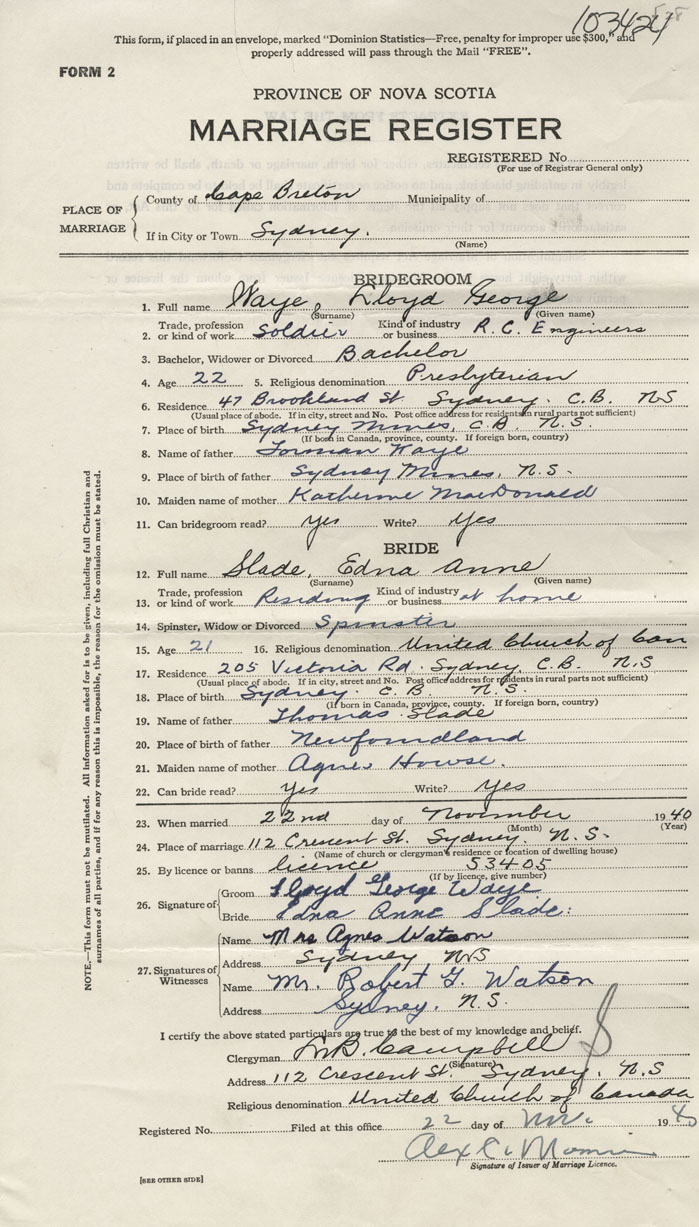 103424
This form, if placed in an envelope, marked "Dominion Statistics—Free, penalty for improper use $300," and
properly addressed will pass through the Mail "FREE".
FORM 2
PROVINCE OF NOVA SCOTIA
MARRIAGE REGISTER
REGISTERED No.
(For use of Registrar General only)
PLACE OF MARRIAGE
County of Cape Breton Municipality of
If in City or Town Sydney.
(Name)
BRIDEGROOM
1. Full name Waye, Lloyd George
(Surname) (Given name)
2. Trade, profession or kind of work Soldier Kind of industry or business R. C. Engineers
3. Bachelor, Widower or Divorced Bachelor
4. Age 22 5. Religious denomination Presbyterian
6. Residence 47 Brookland St Sydney. C.B. NS
(Usual place of abode. If in city, street and No. Post office address for residents in rural parts not sufficient)
7. Place of birth Sydney Mines, C.B. N.S.
(If born in Canada, province, county. If foreign born, country)
8. Name of father Forman Waye
9. Place of birth of father Sydney Mines, N.S.
10. Maiden name of mother Katherine MacDonald
11. Can bridegroom read? yes Write? Yes
BRIDE
12. Full name Slade, Edna Anne
(Surname) (Given name)
13. Trade, profession or kind of work Residing Kind of industry or business at home
14. Spinster, Widow or Divorced Spinster
15. Age 21 16. Religious denomination United Church of Can
17. Residence 205 Victoria Rd. Sydney C.B. N.S
(Usual place of abode. If in city, street and No. Post office address for residents in rural parts not sufficient)
18. Place of birth Sydney. C.B. N.S.
(If born in Canada, province, county. If foreign born, country)
19. Name of father Thomas Slade
20. Place of birth of father Newfoundland
21. Maiden name of mother Agnes Howse.
22. Can bride read? Yes Write? Yes
23. When married 22nd day of November 1940
(Month) (Year)
24. Place of marriage 112 Crescent St. Sydney. N.S.
(Name of church or clergyman's residence or location of dwelling house)
25. By licence or banns licence 53405
(If by licence, give number)
26. Signature of
Groom Lloyd George Waye
Bride Edna Anne Slade:
27. Signatures of Witnesses
Name Mrs Agnes Watson
Address Sydney NS
Name Mr. Robert G. Watson
Address Sydney. N.S.
I certify the above stated particulars are true to the best of my knowledge and belief.
Clergyman Campbell
(Signature)
Address 112 Crescent St. Sydney. N.S
Religious denomination United Church of Canada
Registered No. Filed at this office 22 day of Nov. 1940
Alex
Signature of Issuer of Marriage Licence.
[SEE OTHER SIDE]
NOTE.—This form must not be mutilated. All Information asked for is to be given, including full Christian and
surnames of all parties, and if for any reason this is impossible, the reason for the omission must be stated.